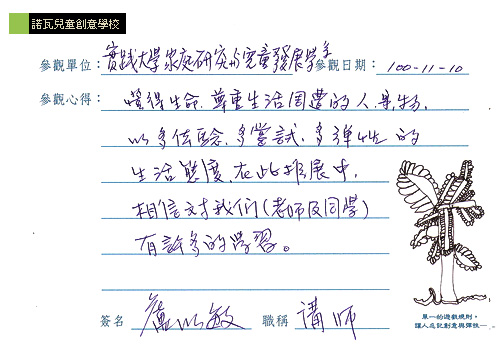 諾瓦兒童創意學校
參觀單位：實踐大學家庭研究與兒童發展學系 參觀日期：100-11-10
參觀心得：懂得生命，尊重生活周遭的人、事、物，
以多体驗，多嘗試，多彈性 的
生活態度，在此推展中，
相信對我們(老師及同學)
有許多的學習。
簽名 盧以敏 職稱 講師
單一的遊戲規則，
讓人忘記創意與彈性—